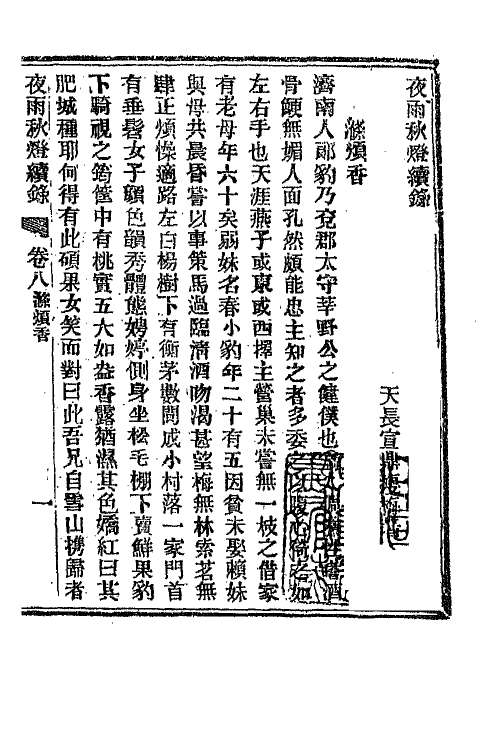 夜雨秋燈續錄
天長宣鼎瘦梅
滌煩香
濟南人鄭豹乃兗郡太守莘野公之僮僕也性嗜酒
骨鯁無媚人面孔然頗能忠主知之者多委之以腹心倚之如
左右手也天涯燕子或東或西擇主營巢未嘗無一枝之借家
有老母年六十矣弱妹名春小豹年二十有五因貧未娶賴妹
與母共晨昏嘗以事策馬過臨濟酒吻渴甚望梅無林索茗無
肆正煩懆適路左白楊樹下有衡茅數間成小村落一家門首
有垂髫女子顏色韻秀體態娉婷側身坐松毛棚下賣鮮果豹
下騎視之筠筐中有桃實五六如盎香露猶濕其色嬌紅曰其
肥城種耶何得有此碩果女笑而對曰此吾兄自雪山携歸者
夜雨秋燈續錄 卷八 滌煩香 一